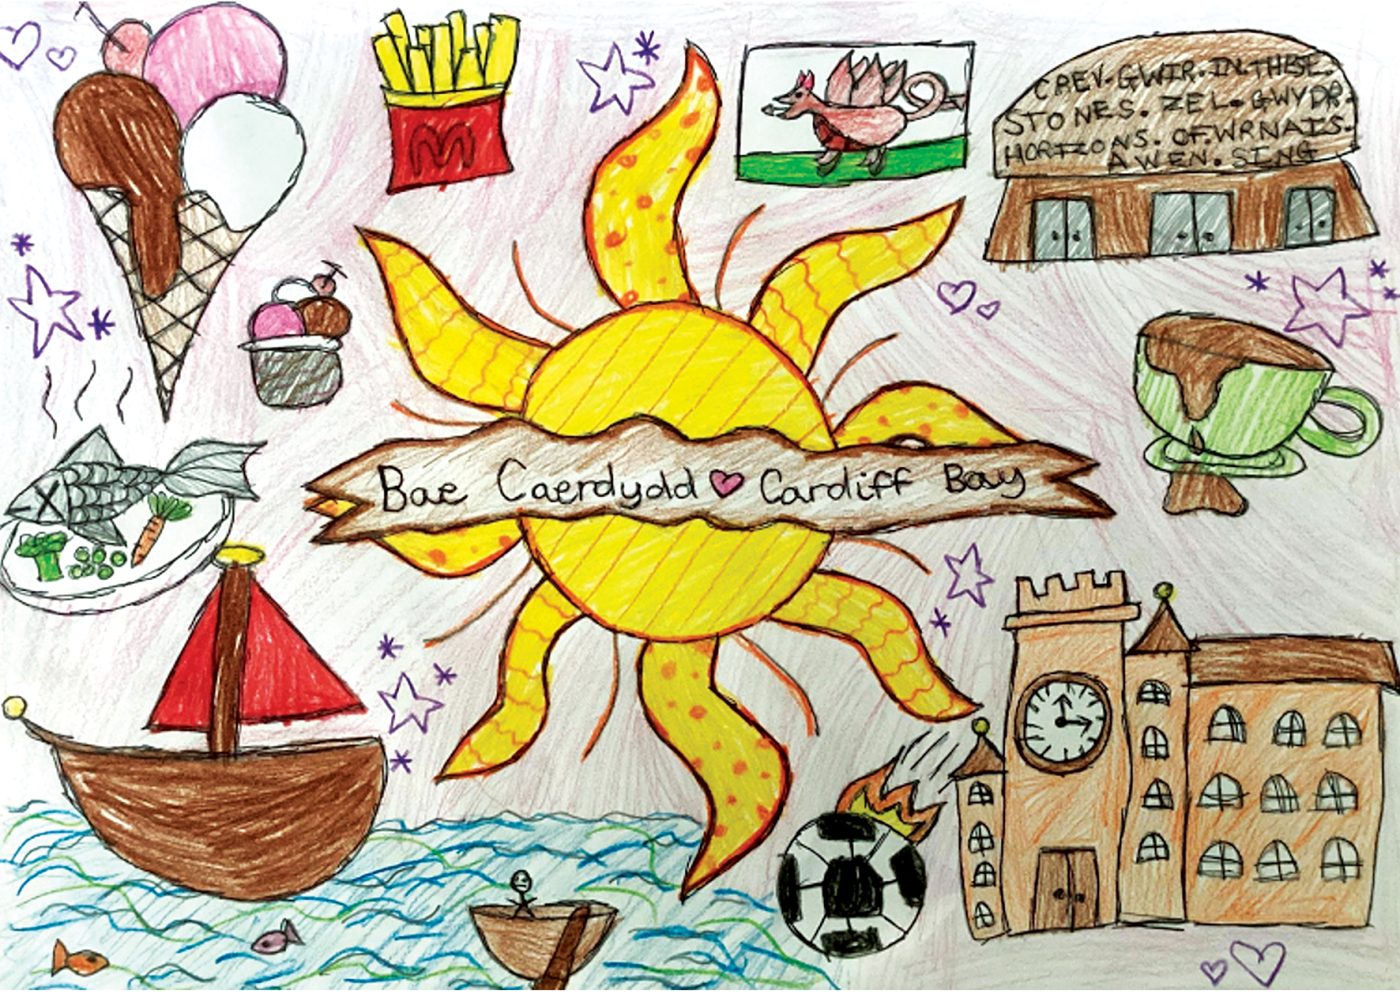 M
CREV.GWIR.IN.THESE.
STONES. ZEL.GWYDR.
HORIZONS. OF.WRNAIS.
AWEN. SING
Bae Caerdydd ♥ Cardiff Bay